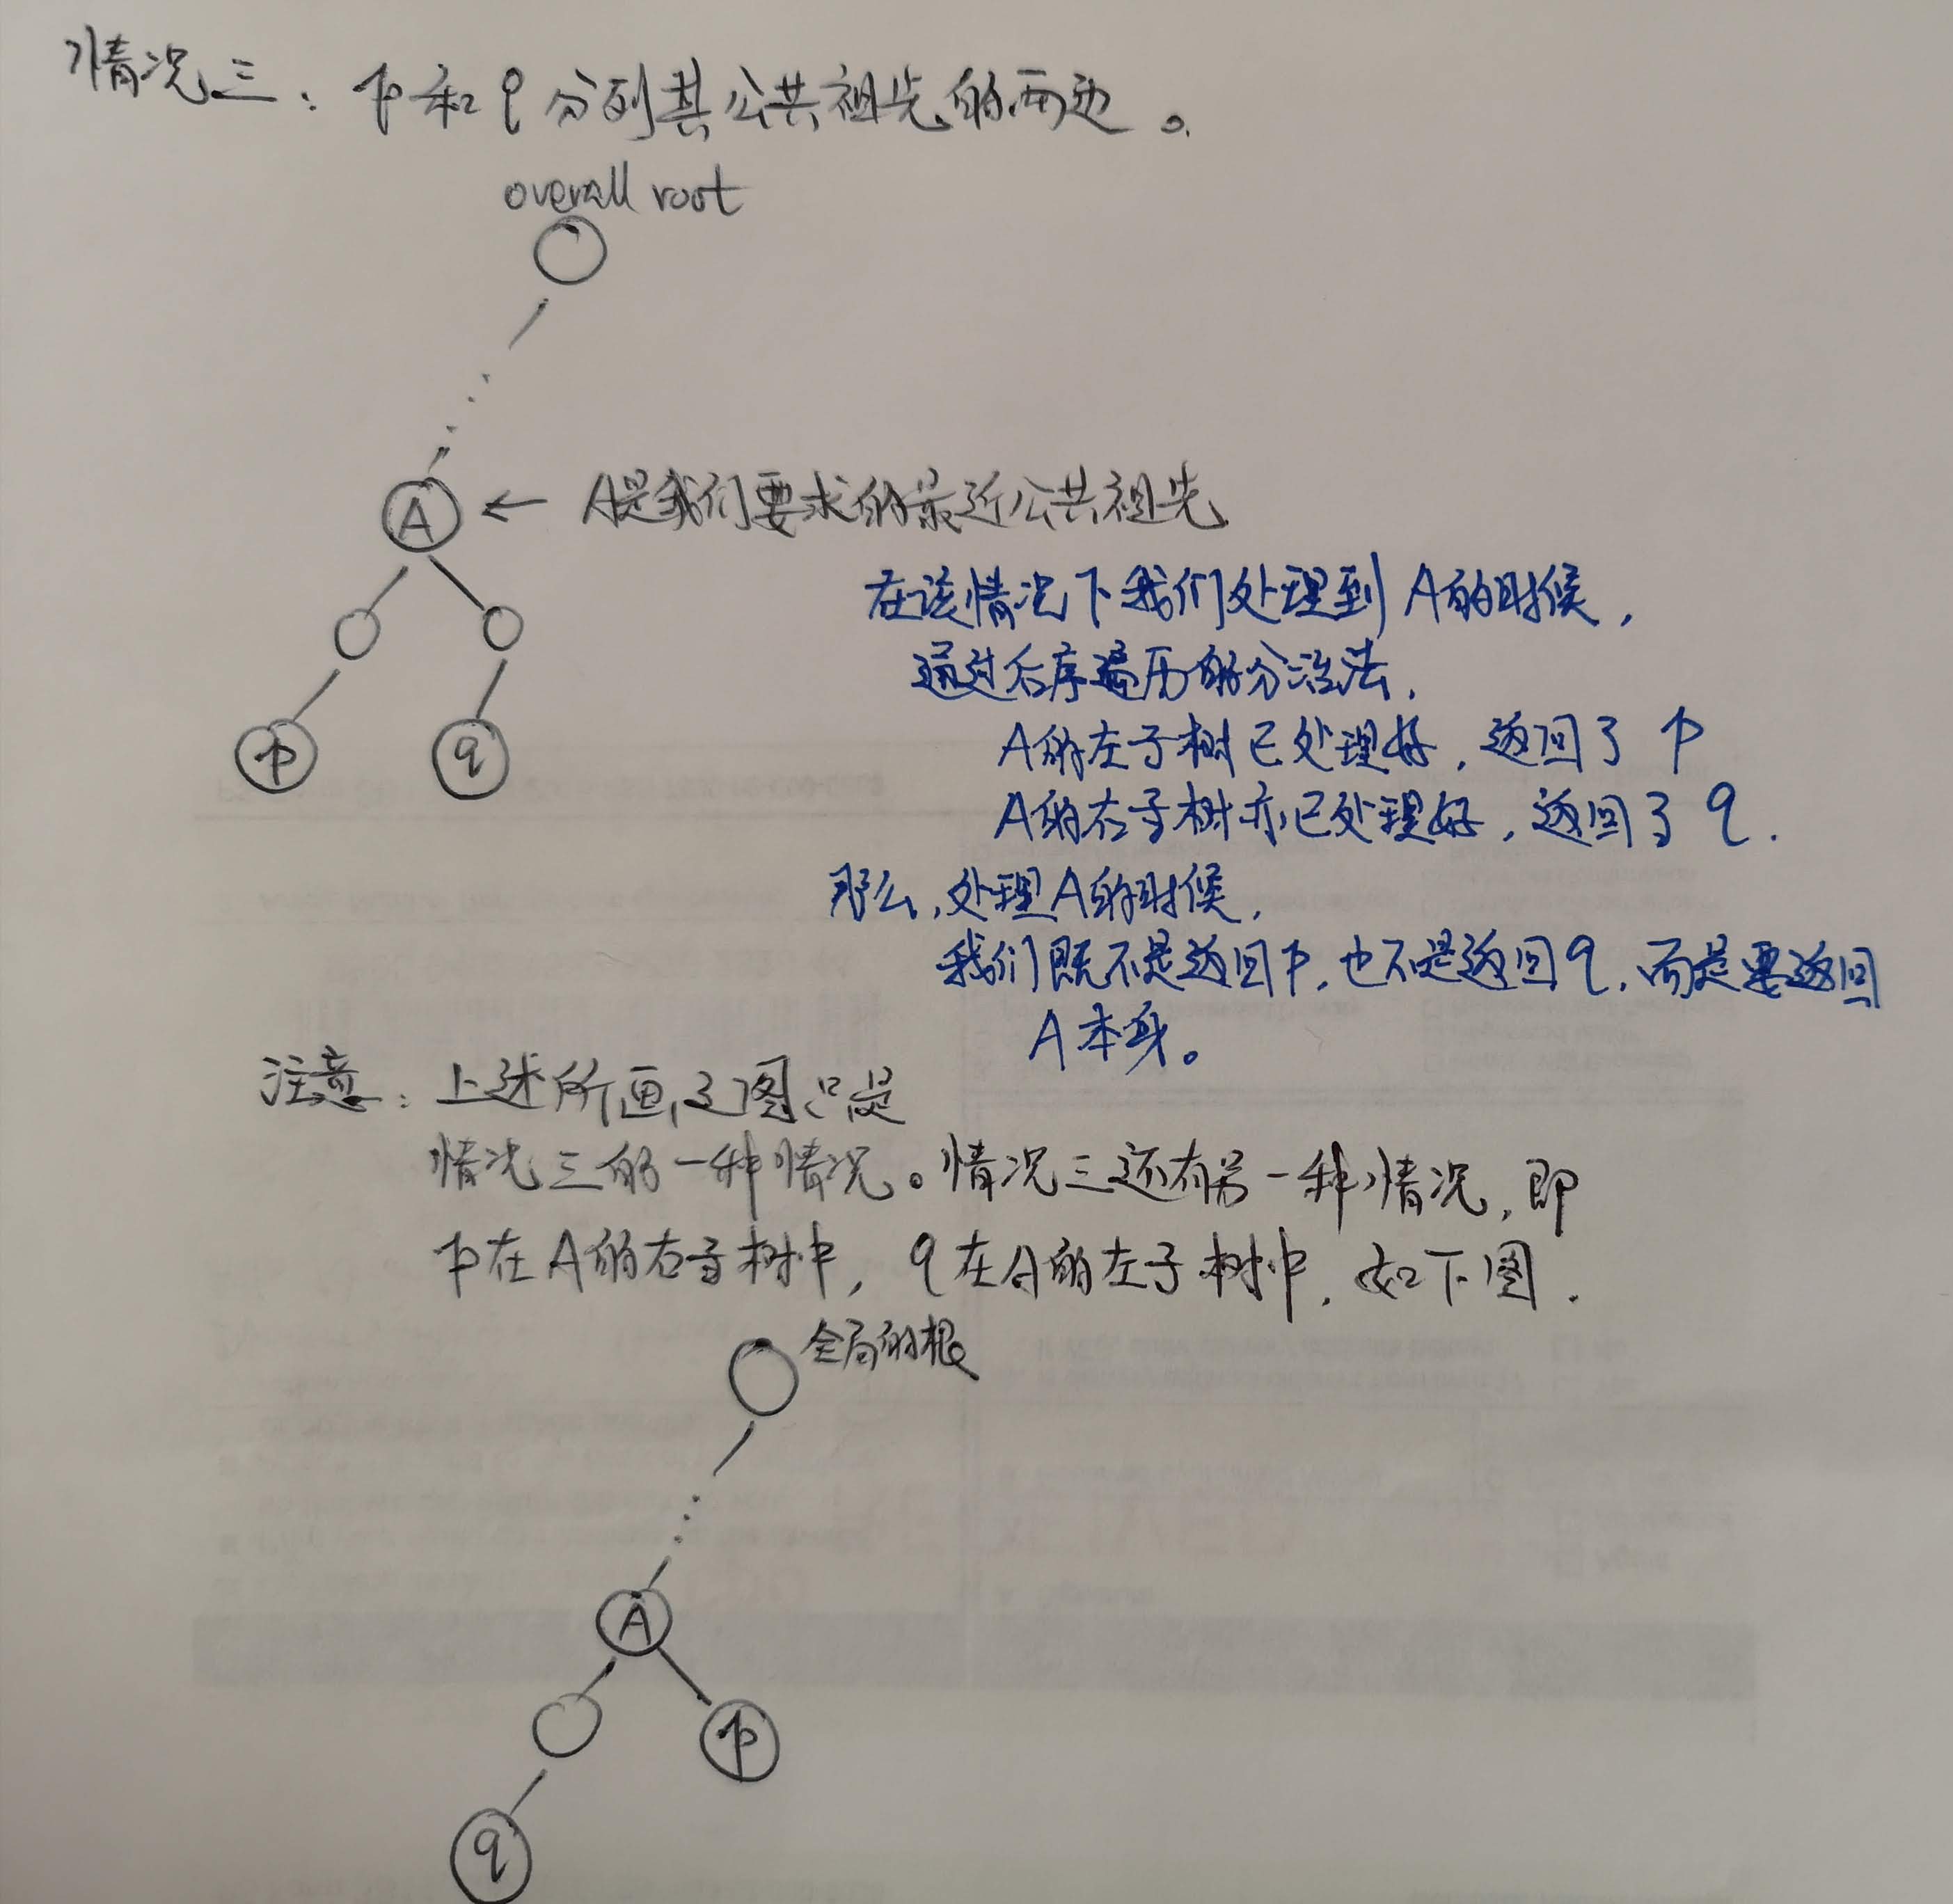 情况三：p和q分列其公共祖先的两边。
overall root
A ← A是我们要求的最近公共祖先
在该情况下我们处理到A的时候，
通过后序遍历的分治法，
p q
A的左子树已处理好，返回了p
A的右子树亦已处理好，返回了q.
那么，处理A的时候，
我们既不是返回p，也不是返回q，而是要返回
A本身。
注意：上述所画之图只是
情况三的一种情况。情况三还有另一种情况，即
p在A的右子树中，q在A的左子树中，如下图.
全局的根
A
p
q